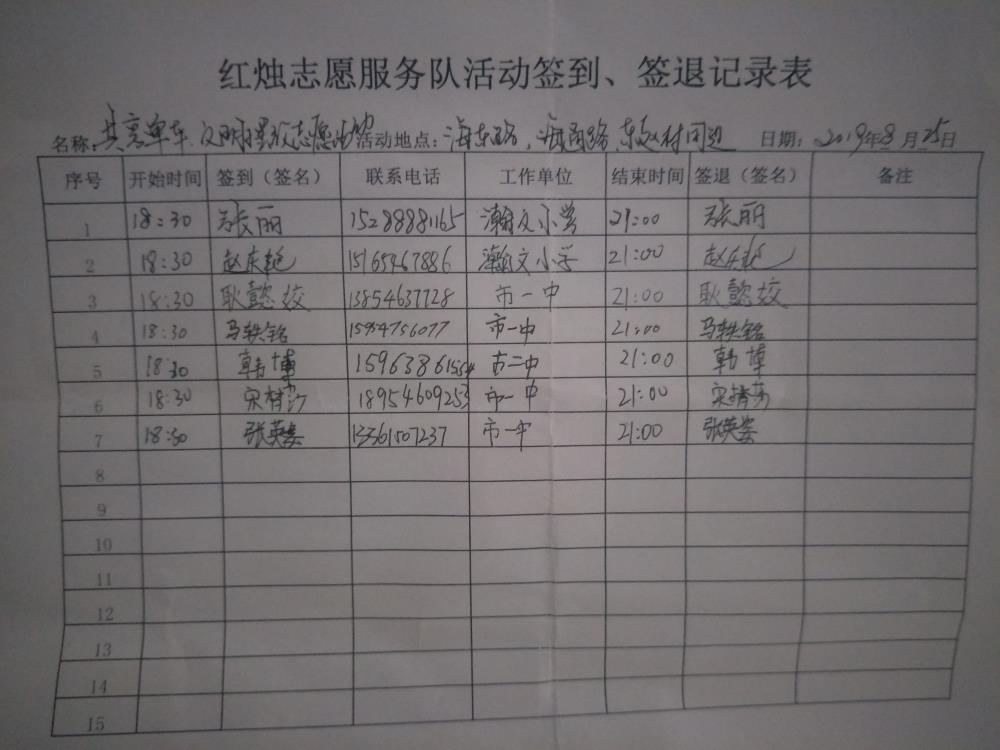 红烛志愿服务队活动签到、签退记录表
名称:共享单车 文明 志愿活动 活动地点:海东路,海南路,东赵村周边 日期:2019年8月25日
序号 开始时间 签到(签名) 联系电话 工作单位 结束时间 签退(签名) 备注
1 18:30 张丽 15288881165 瀚文小学 21:00 张丽
2 18:30 赵庆艳 15165467886 瀚文小学 21:00 赵庆艳
3 18:30 耿懿姣 13854637728 市一中 21:00 耿懿姣
4 18:30 马轶铭 15954756077 市一中 21:00 马轶铭
5 18:30 韩博 21:00 韩博
6 18:30 宋梦莎 18954609253 市一中 21:00 宋梦莎
7 18:30 张英姿 13361507237 市一中 21:00 张英姿
8
9
10
11
12
13
14
15